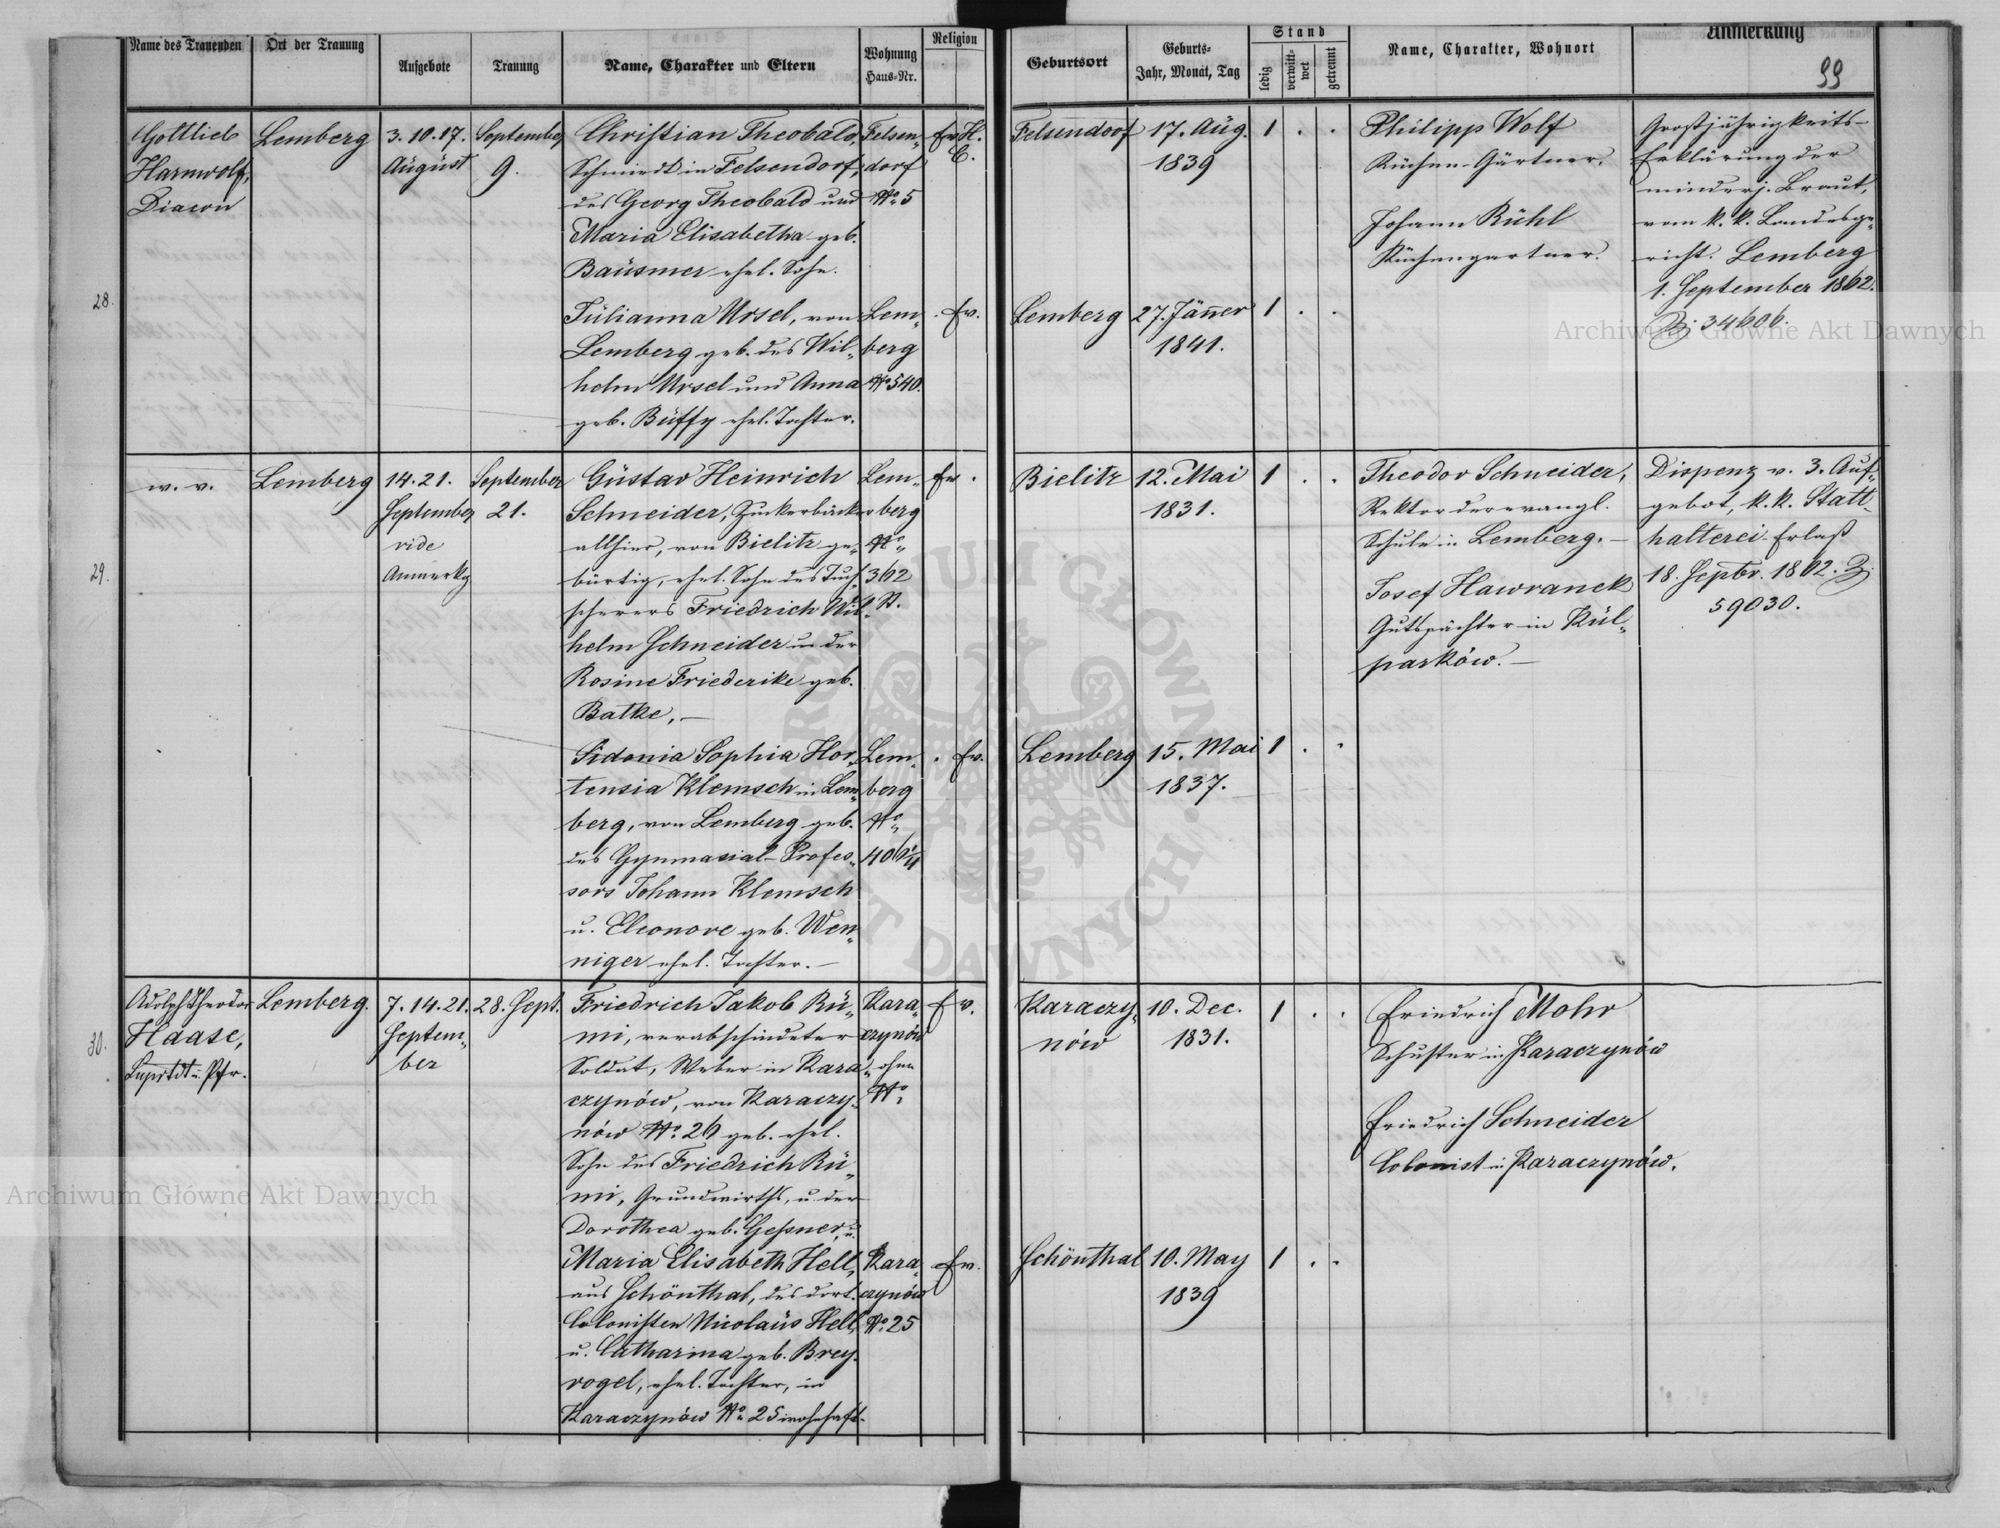 Name des Trauenden
Ort der Trauung
Aufgebote
Trauung
Name, Charakter und Eltern
Wohnung
Haus-Nr.
Religion
Geburtsort
Geburts-
Jahr, Monat, Tag
Stand
ledig
verwitt-
wet
getrennt
Name, Charakter, Wohnort
Anmerkung
99
28.
Gottlieb
Harnwolf,
Diacon
Lemberg
3. 10. 17.
August
September
9.
Christian Theobald,
Schmied in Felsendorf,
des Georg Theobald und
Maria Elisabetha geb.
Bäusmer ehel. Sohn.
Felsen-
dorf
No 5
Ev. H.
C.
Felsendorf
17. Aug.
1839
1 . .
Philipp Wolf
Küchen-Gärtner.
Johann Rühl
Küchengartner.
Grosjährigkeits-
Erklärung der
minderj. Braut,
vom k. k. Landesge-
richt. Lemberg
1. September 1862.
Z. 34606.
Julianna Ursel, von
Lemberg geb. des Wil-
helm Ursel und Anna
geb. Büffy ehel. Tochter.
Lem-
berg
No 540.
. Ev.
Lemberg
27. Jänner
1841.
1 . .
29.
w. v.
Lemberg
14. 21.
September
vide
Anmerkg
September
21.
Gustav Heinrich
Schneider, Zuckerbäcker
allhier, von Bielitz ge-
bürtig, ehel. Sohn des Tuch-
scherers Friedrich Wil-
helm Schneider u. der
Rosine Friederike geb.
Batke, —
Lem-
berg
No
362
Ev .
Bielitz
12. Mai
1831.
1 . .
Theodor Schneider,
Rektor der evangl.
Schule in Lemberg. —
Josef Hawranek
Gutspächter in Kul-
parków. —
Dispenz v. 3. Auf-
gebot, k. k. Statt-
halterei-Erlaß
18. Septbr. 1862. Z.
59030.
Sidonia Sophia Hor-
tensia Klemsch in Lem-
berg, von Lemberg geb.
des Gymnasial-Profes-
sors Johann Klemsch
u. Eleonore geb. Wen-
niger ehel. Tochter. —
Lem-
berg
No
. Ev.
Lemberg
15. Mai
1837.
1 . .
30.
Adolph Theodor
Haase,
Suprtdt u. Pfr.
Lemberg.
7. 14. 21.
Septem-
ber
28. Sept.
Friedrich Jakob Rü-
mi, verabschiedeter
Soldat, Weber in Kara-
czynów, von Karaczy-
nów No. 26 geb. ehel.
Sohn des Friedrich Rü-
mi, Grundwirths, u. der
Dorothea geb. Geßner, u.
Kara-
czynów
ohne
No.
Ev.
Karaczy-
nów
10. Dec.
1831.
1 . .
Friedrich Mohr
Schuster in Karaczynów
Friedrich Schneider
Colonist in Karaczynów.
Maria Elisabeth Hell,
aus Schönthal, des dort.
Colonisten Nicolaus Hell,
u. Catharina geb. Brey-
vogel, ehel. Tochter, in
Karaczynów No 25 wohnhaft.
Kara-
czynów
No 25
. Ev.
Schönthal
10. May
1839
1 . .
Archiwum Główne Akt Dawnych
Archiwum Główne Akt Dawnych
ARCHIWUM GŁÓWNE AKT DAWNYCH